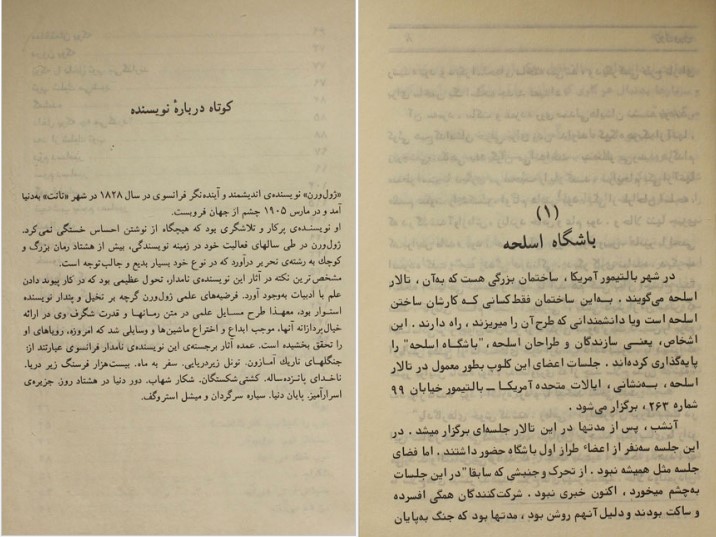 کوتاه دربارهٔ نویسنده
«ژول‌ورن» نویسنده‌ی اندیشمند و آینده‌نگر فرانسوی در سال ۱۸۲۸ در شهر «نانت» به‌دنیا
آمد و در مارس ۱۹۰۵ چشم از جهان فروبست.
او نویسنده‌ی پرکار و تلاشگری بود که هیچگاه از نوشتن احساس خستگی نمی‌کرد.
ژول‌ورن در طی سالهای فعالیت خود در زمینه نویسندگی، بیش از هشتاد رمان بزرگ و
کوچك به رشته‌ی تحریر درآورد که در نوع خود بسیار بدیع و جالب‌توجه است.
مشخص‌ترین نکته در آثار این نویسنده‌ی نامدار، تحول عظیمی بود که در کار پیوند دادن
علم با ادبیات به‌وجود آورد. فرضیه‌های علمی ژول‌ورن گرچه بر تخیل و پندار نویسنده
استوار بود، معهذا طرح مسایل علمی در متن رمانها و قدرت شگرف وی در ارائه
خیال‌پردازانه آنها، موجب ابداع و اختراع ماشین‌ها و وسایلی شد که امروزه، رویاهای او
را تحقق بخشیده است. عمده آثار برجسته‌ی این نویسنده‌ی نامدار فرانسوی عبارتند از:
جنگلهای تاریك آمازون. تونل زیردریایی. سفر به ماه. بیست‌هزار فرسنگ زیر دریا.
ناخدای پانزده‌ساله. کشتی‌شکستگان. شکار شهاب. دور دنیا در هشتاد روز. جزیره‌ی
اسرارآمیز. پایان دنیا. سیاره سرگردان و میشل استروگف.
(۱)
باشگاه اسلحه
در شهر بالتیمور آمریکا، ساختمان بزرگی هست که به‌آن، تالار
اسلحه می‌گویند. به‌این ساختمان فقط کسانی که کارشان ساختن
اسلحه است ویا دانشمندانی که طرح آن را میریزند، راه دارند. این
اشخاص، یعنی سازندگان و طراحان اسلحه، "باشگاه اسلحه" را
پایه‌گذاری کرده‌اند. جلسات اعضای این کلوب بطور معمول در تالار
اسلحه، به‌نشانی، ایالات متحده آمریکا ــ بالتیمور خیابان ۹۹
شماره ۲۶۳، برگزار می‌شود.
آنشب، پس از مدتها در این تالار جلسه‌ای برگزار میشد. در
این جلسه سه‌نفر از اعضاء طراز اول باشگاه حضور داشتند. اما فضای
جلسه مثل همیشه نبود. از تحرک و جنبشی که سابقا" در این جلسات
به‌چشم میخورد، اکنون خبری نبود. شرکت‌کنندگان همگی افسرده
و ساکت بودند و دلیل آنهم روشن بود، مدتها بود که جنگ به‌پایان